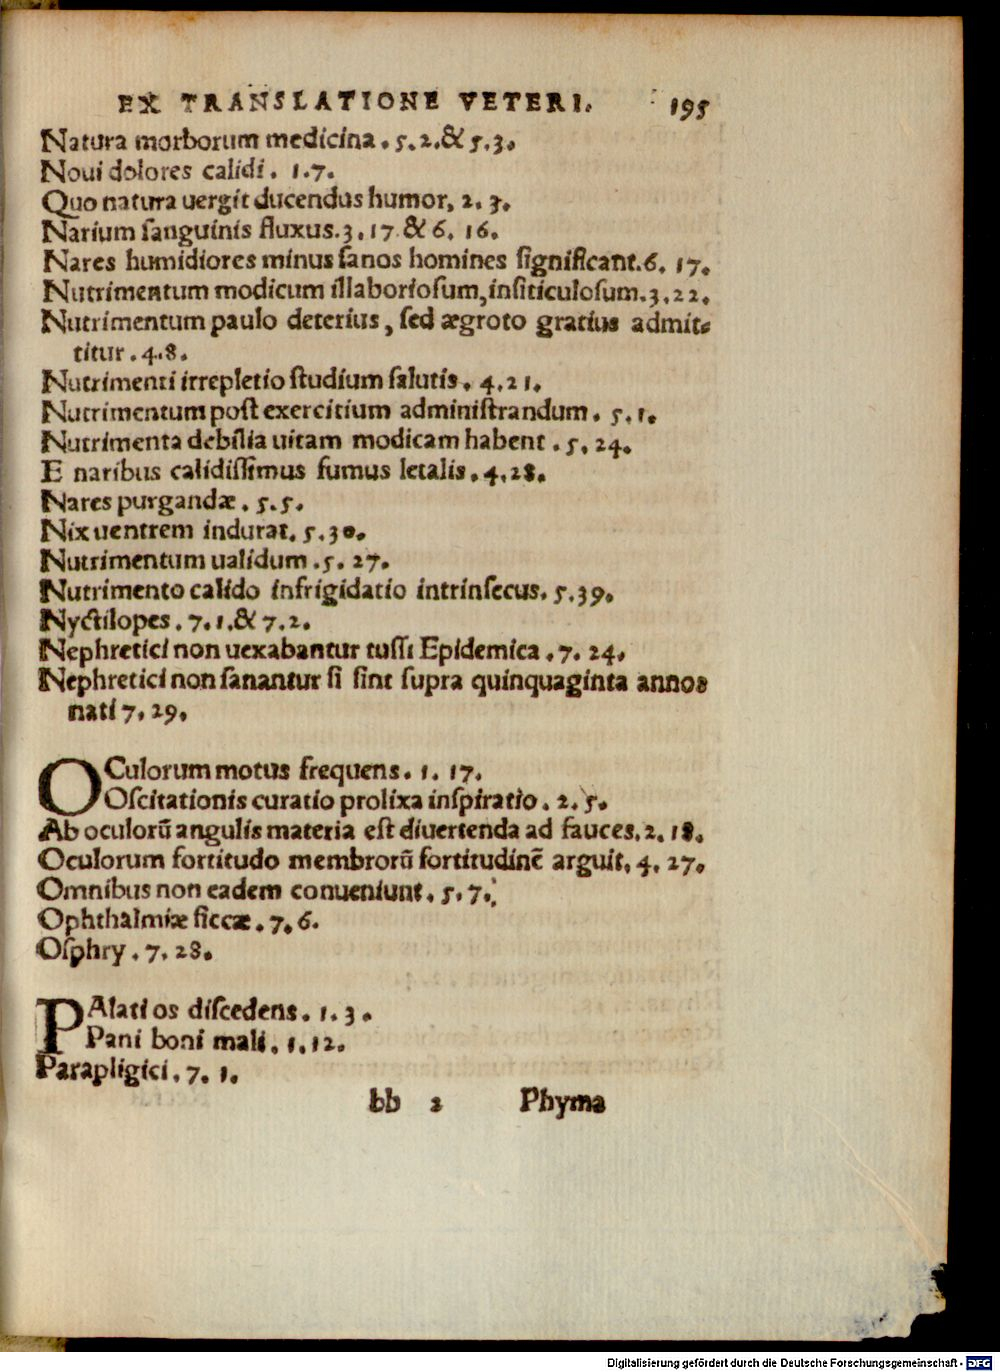 EX TRANSLATIONE VETERI. 195
Natura morborum medicina. 5.2.& 5.3.
Noui dolores calidi. 1.7.
Quo natura uergit ducendus humor, 2. 3.
Narium ſanguinis fluxus.3.17 & 6. 16.
Nares humidiores minus ſanos homines ſignificant.6. 17.
Nutrimentum modicum illaborioſum,inſiticuloſum.3.22.
Nutrimentum paulo deterius, ſed ægroto gratius admit-
titur. 4.8.
Nutrimenti irrepletio ſtudium ſalutis. 4.21.
Nutrimentum poſt exercitium adminiſtrandum. 5.1.
Nutrimenta debilia uitam modicam habent. 5. 24.
E naribus calidiſſimus fumus letalis. 4.28.
Nares purgandæ. 5.5.
Nix uentrem indurat. 5.30.
Nutrimentum ualidum.5. 27.
Nutrimento calido infrigidatio intrinſecus. 5.39.
Nyctilopes. 7.1.& 7.2.
Nephretici non uexabantur tuſſi Epidemica. 7. 24.
Nephretici non ſanantur ſi ſint ſupra quinquaginta annos
nati 7. 29.
OCulorum motus frequens. 1. 17.
Oſcitationis curatio prolixa inſpiratio. 2. 5.
Ab oculorũ angulis materia eſt diuertenda ad fauces.2. 18.
Oculorum fortitudo membrorũ fortitudinẽ arguit. 4. 27.
Omnibus non eadem conueniunt. 5.7.
Ophthalmiæ ſiccæ. 7.6.
Oſphry. 7. 28.
PAlati os diſcedens. 1. 3.
Pani boni mali. 1.12.
Parapligici. 7. 1.
bb 2 Phyma
Digitalisierung gefördert durch die Deutsche Forschungsgemeinschaft - DFG